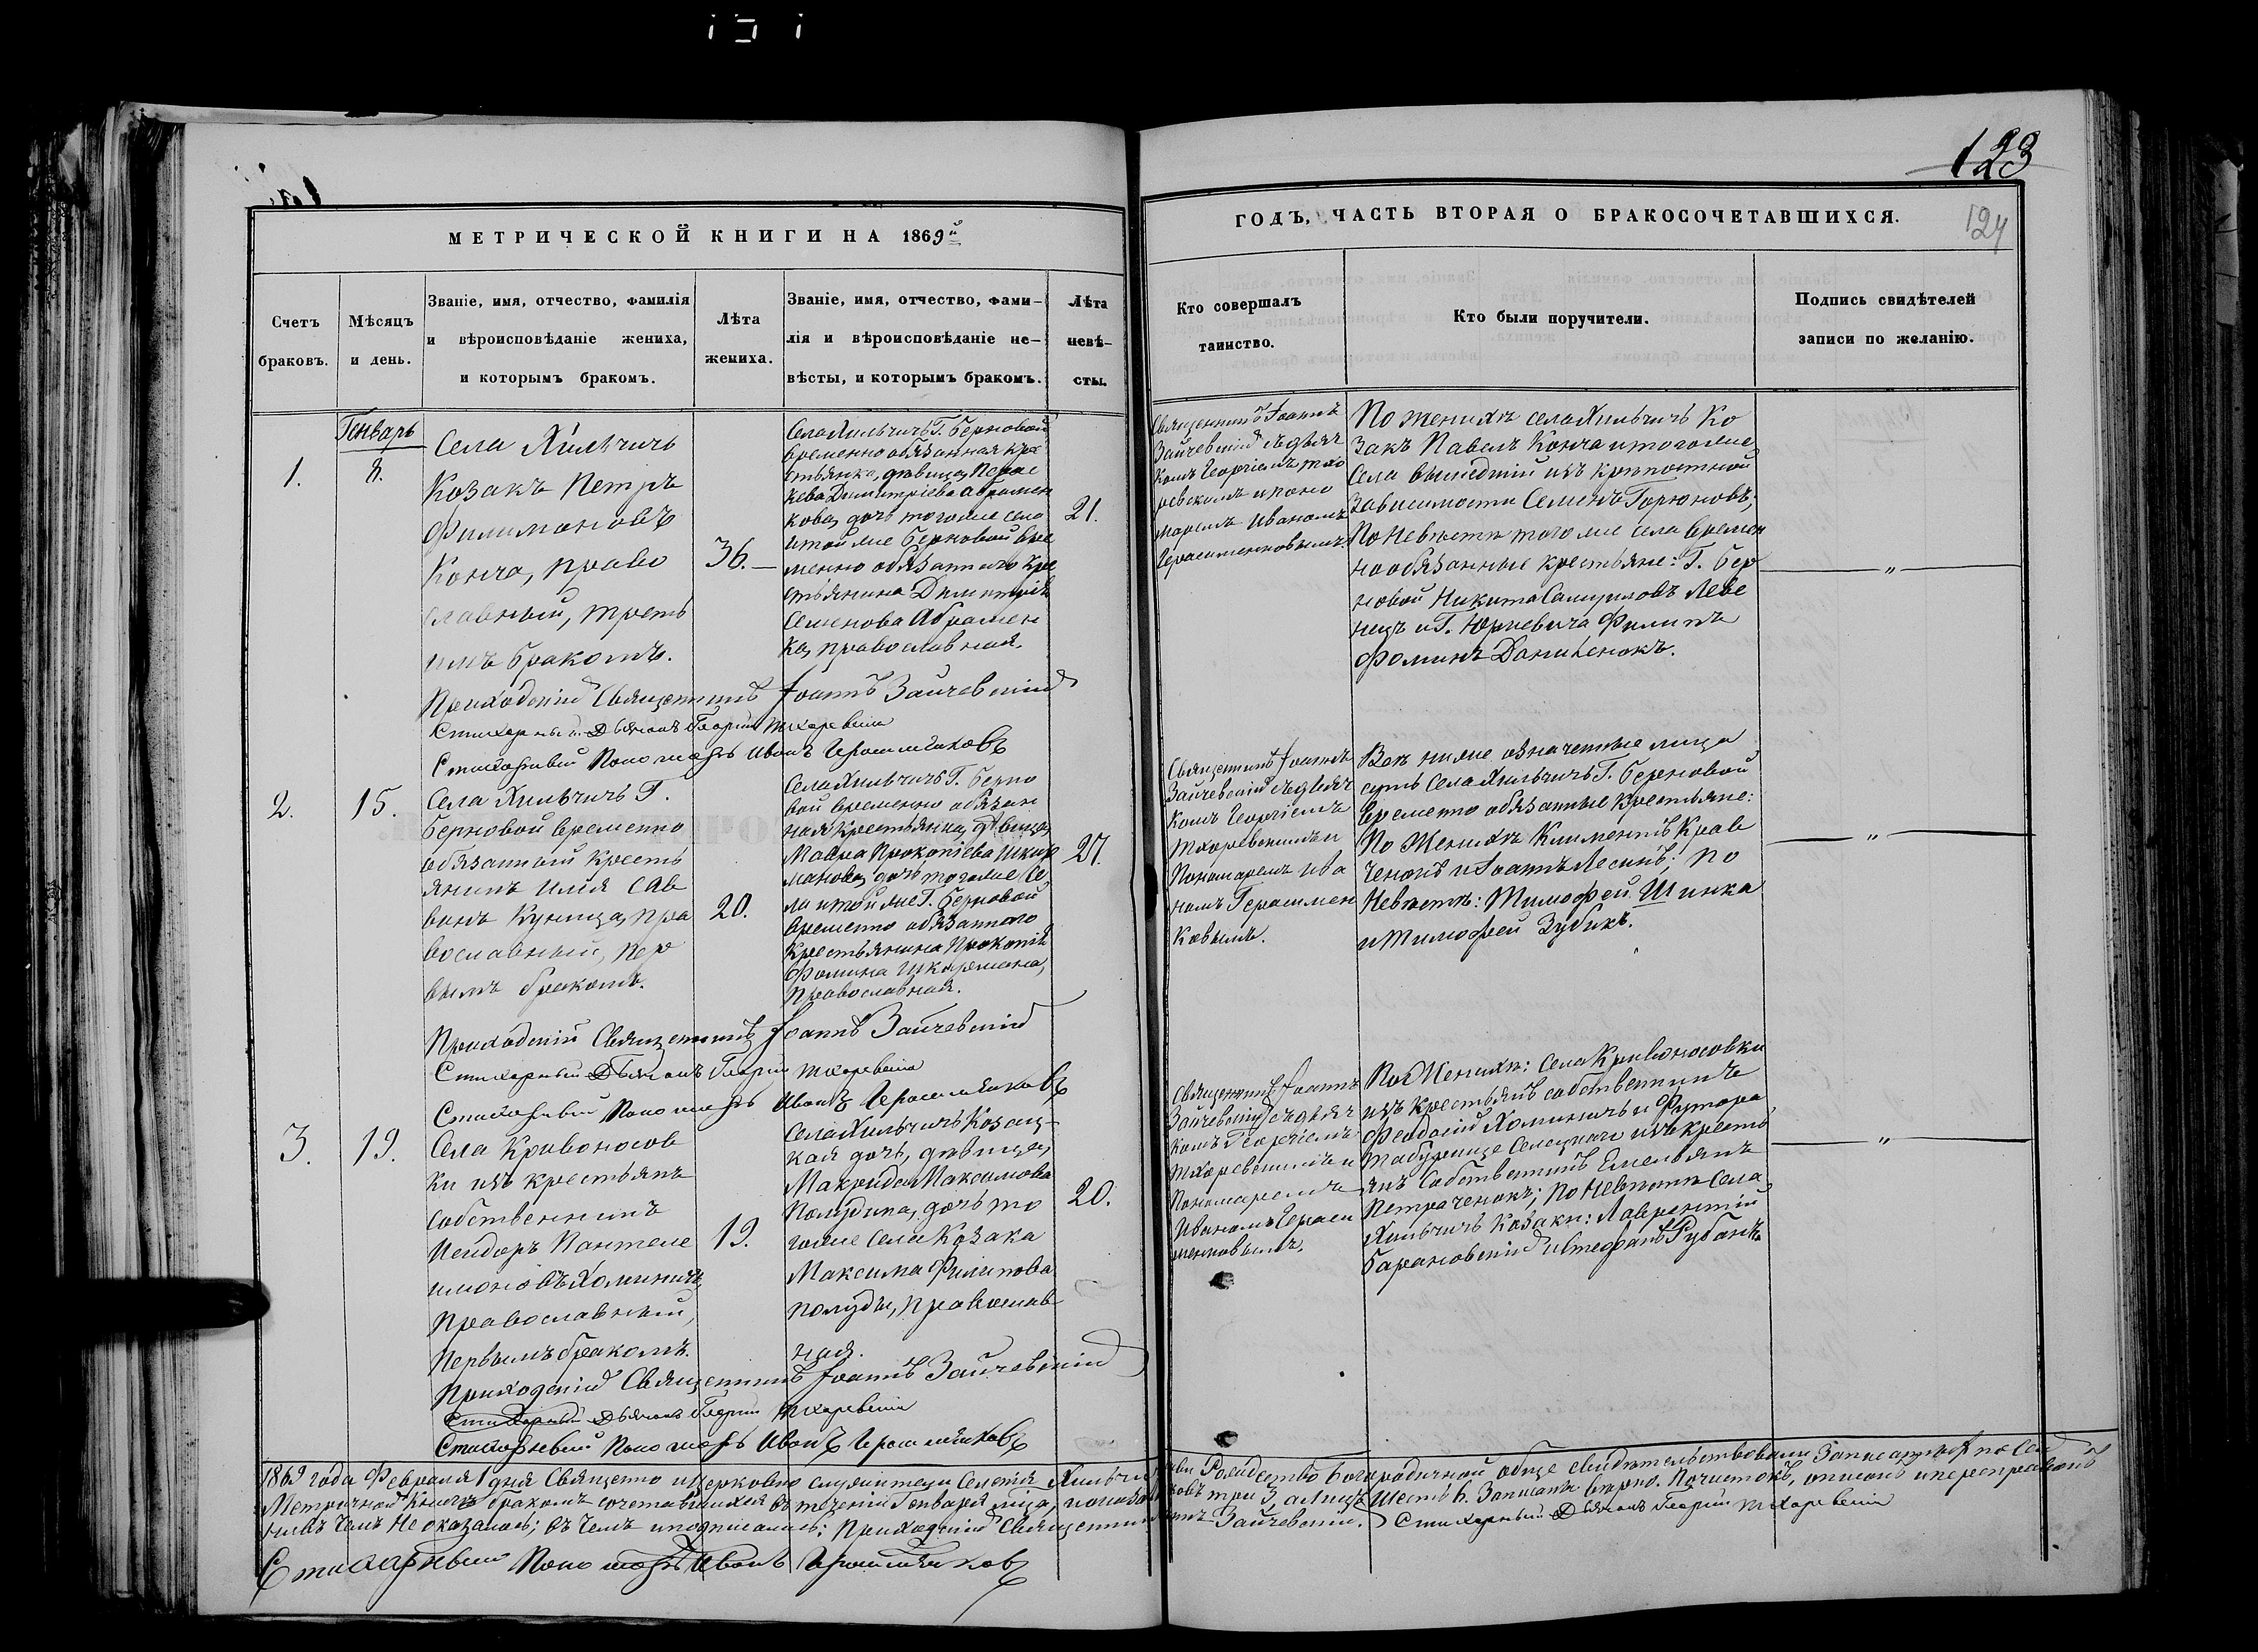 123
124
МЕТРИЧЕСКОЙ КНИГИ НА 1869й
ГОДЪ, ЧАСТЬ ВТОРАЯ О БРАКОСОЧЕТАВШИХСЯ.
Счетъ
браковъ.
Мѣсяцъ
и день.
Званіе, имя, отчество, фамилія
и вѣроисповѣданіе жениха,
и которымъ бракомъ.
Лѣта
жениха.
Званіе, имя, отчество, фами-
лія и вѣроисповѣданіе не-
вѣсты, и которымъ бракомъ.
Лѣта
невѣ-
сты.
Кто совершалъ
таинство.
Кто были поручители.
Подпись свидѣтелей
записи по желанію.
1.
Генварь
8.
Села Хильчичь
Козакъ Петръ
Филимоновъ
Конча, право
славный, треть
имъ бракомъ.
36.
Села Хильчичь Г. Берновой
временно обязанная кре
стьянка, дѣвица, Парас
кева Димитріева Абрамен
кова, дочь тогоже села
и тойже Берновой вре
менно обязаннаго кре
стьянина Димитрія
Семенова Абрамен
ка, православная.
21.
Священникъ Іоаннъ
Зайчевскій съ дьяч
комъ Георгіемъ Тхо
ревскимъ и поно
маремъ Иваномъ
Герасименковымъ.
По женихѣ села Хильчичь Ко
закъ Павелъ Конча и тогоже
села вышедшій изъ крѣпостной
зависимости Семенъ Горюновъ;
По Невѣстѣ тогоже села времен
но обязанные крестьяне: Г. Бер
новой Никита Самуиловъ Леве
нецъ и Г. Юркевича Филипъ
Фоминъ Даниленокъ.
"
Приходскій Священникъ Іоаннъ Зайчевскій
Стихарный Дьячокъ Георгій Тхоревскій
Стихарный Пономарь Иванъ Герасименковъ
2.
15.
Села Хильчичь Г.
Берновой временно
обязанный кресть
янинъ Илія Сав
винъ Куница, пра
вославный, пер
вымъ бракомъ.
20.
Села Хильчичь Г. Берно
вой временно обязан
ная крестьянка, дѣвица,
Мавра Прокопіева Шкир
манова, дочь тогоже се
ла и тойже Г. Берновой
временно обязаннаго
крестьянина Прокопія
Фомина Шкирмана,
православная.
27.
Священникъ Іоаннъ
Зайчевскій съ дьяч
комъ Георгіемъ
Тхоревскимъ и
Пономаремъ Ива
номъ Герасимен
ковымъ.
Всѣ ниже означенные лица
суть села Хильчичь Г. Берновой
временно обязанные крестьяне:
По Женихѣ Климентъ Крав
ченокъ и Іоаннъ Лесикъ; по
Невѣстѣ: Тимофей Шинка
и Тимофей Зубикъ.
"
Приходскій Священникъ Іоаннъ Зайчевскій
Стихарный Дьячокъ Георгій Тхоревскій
Стихарный Пономарь Иванъ Герасименковъ
3.
19.
Села Кривоносов
ки изъ крестьянъ
собственникъ
Исидоръ Пантеле
имоновъ Хоминичь,
Православный,
Первымъ бракомъ.
19.
Села Хильчичь Козац-
кая дочь, дѣвица,
Макрида Максимова
Полудина, дочь то
гоже села Козака
Максима Филипова
Полуды, православ
ная.
20.
Священникъ Іоаннъ
Зайчевскій съ дьяч
комъ Георгіемъ
Тхоревскимъ и
Пономаремъ
Иваномъ Гераси
менковымъ.
По Женихѣ: Села Кривоносовки
изъ крестьянъ собственникъ
Феодосій Хоминичь и Футора
изъ кресть
янъ собственникъ Емельянъ
Петраченокъ; по Невѣстѣ Села
Хильчичь Козаки: Лаврентій
Барановскій и Стефанъ Рубанъ.
"
Приходскій Священникъ Іоаннъ Зайчевскій
Стихарный Дьячокъ Георгій Тхоревскій
Стихарный Пономарь Иванъ Герасименковъ
1869 года Февраля 1 дня Священно и церковно служители Селенія Рождество Богородичной обще свидѣтельствовали записанныхъ по сей
Метричной Книгѣ бракомъ сочетавшихся въ теченіи Генваря три 3, а лицъ Шесть 6. Записаны вѣрно. Почистокъ, описокъ и переправокъ
ни въ чемъ не оказалось; въ чемъ и подписались: Приходскій Священникъ Зайчевскій. Стихарный Дьячокъ Георгій Тхоревскій
Стихарный Пономарь Иванъ Герасименковъ